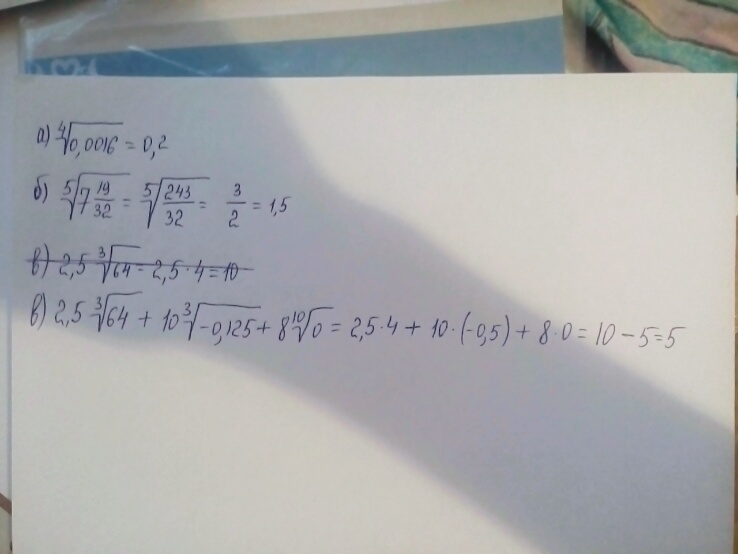 а) ⁴√0,0016 = 0,2
б) ⁵√7 19/32 = ⁵√243/32 = 3/2 = 1,5
в) 2,5 ³√64 = 2,5 · 4 = 10
в) 2,5 ³√64 + 10 ³√-0,125 + 8 ¹⁰√0 = 2,5·4 + 10·(-0,5) + 8·0 = 10 - 5 = 5